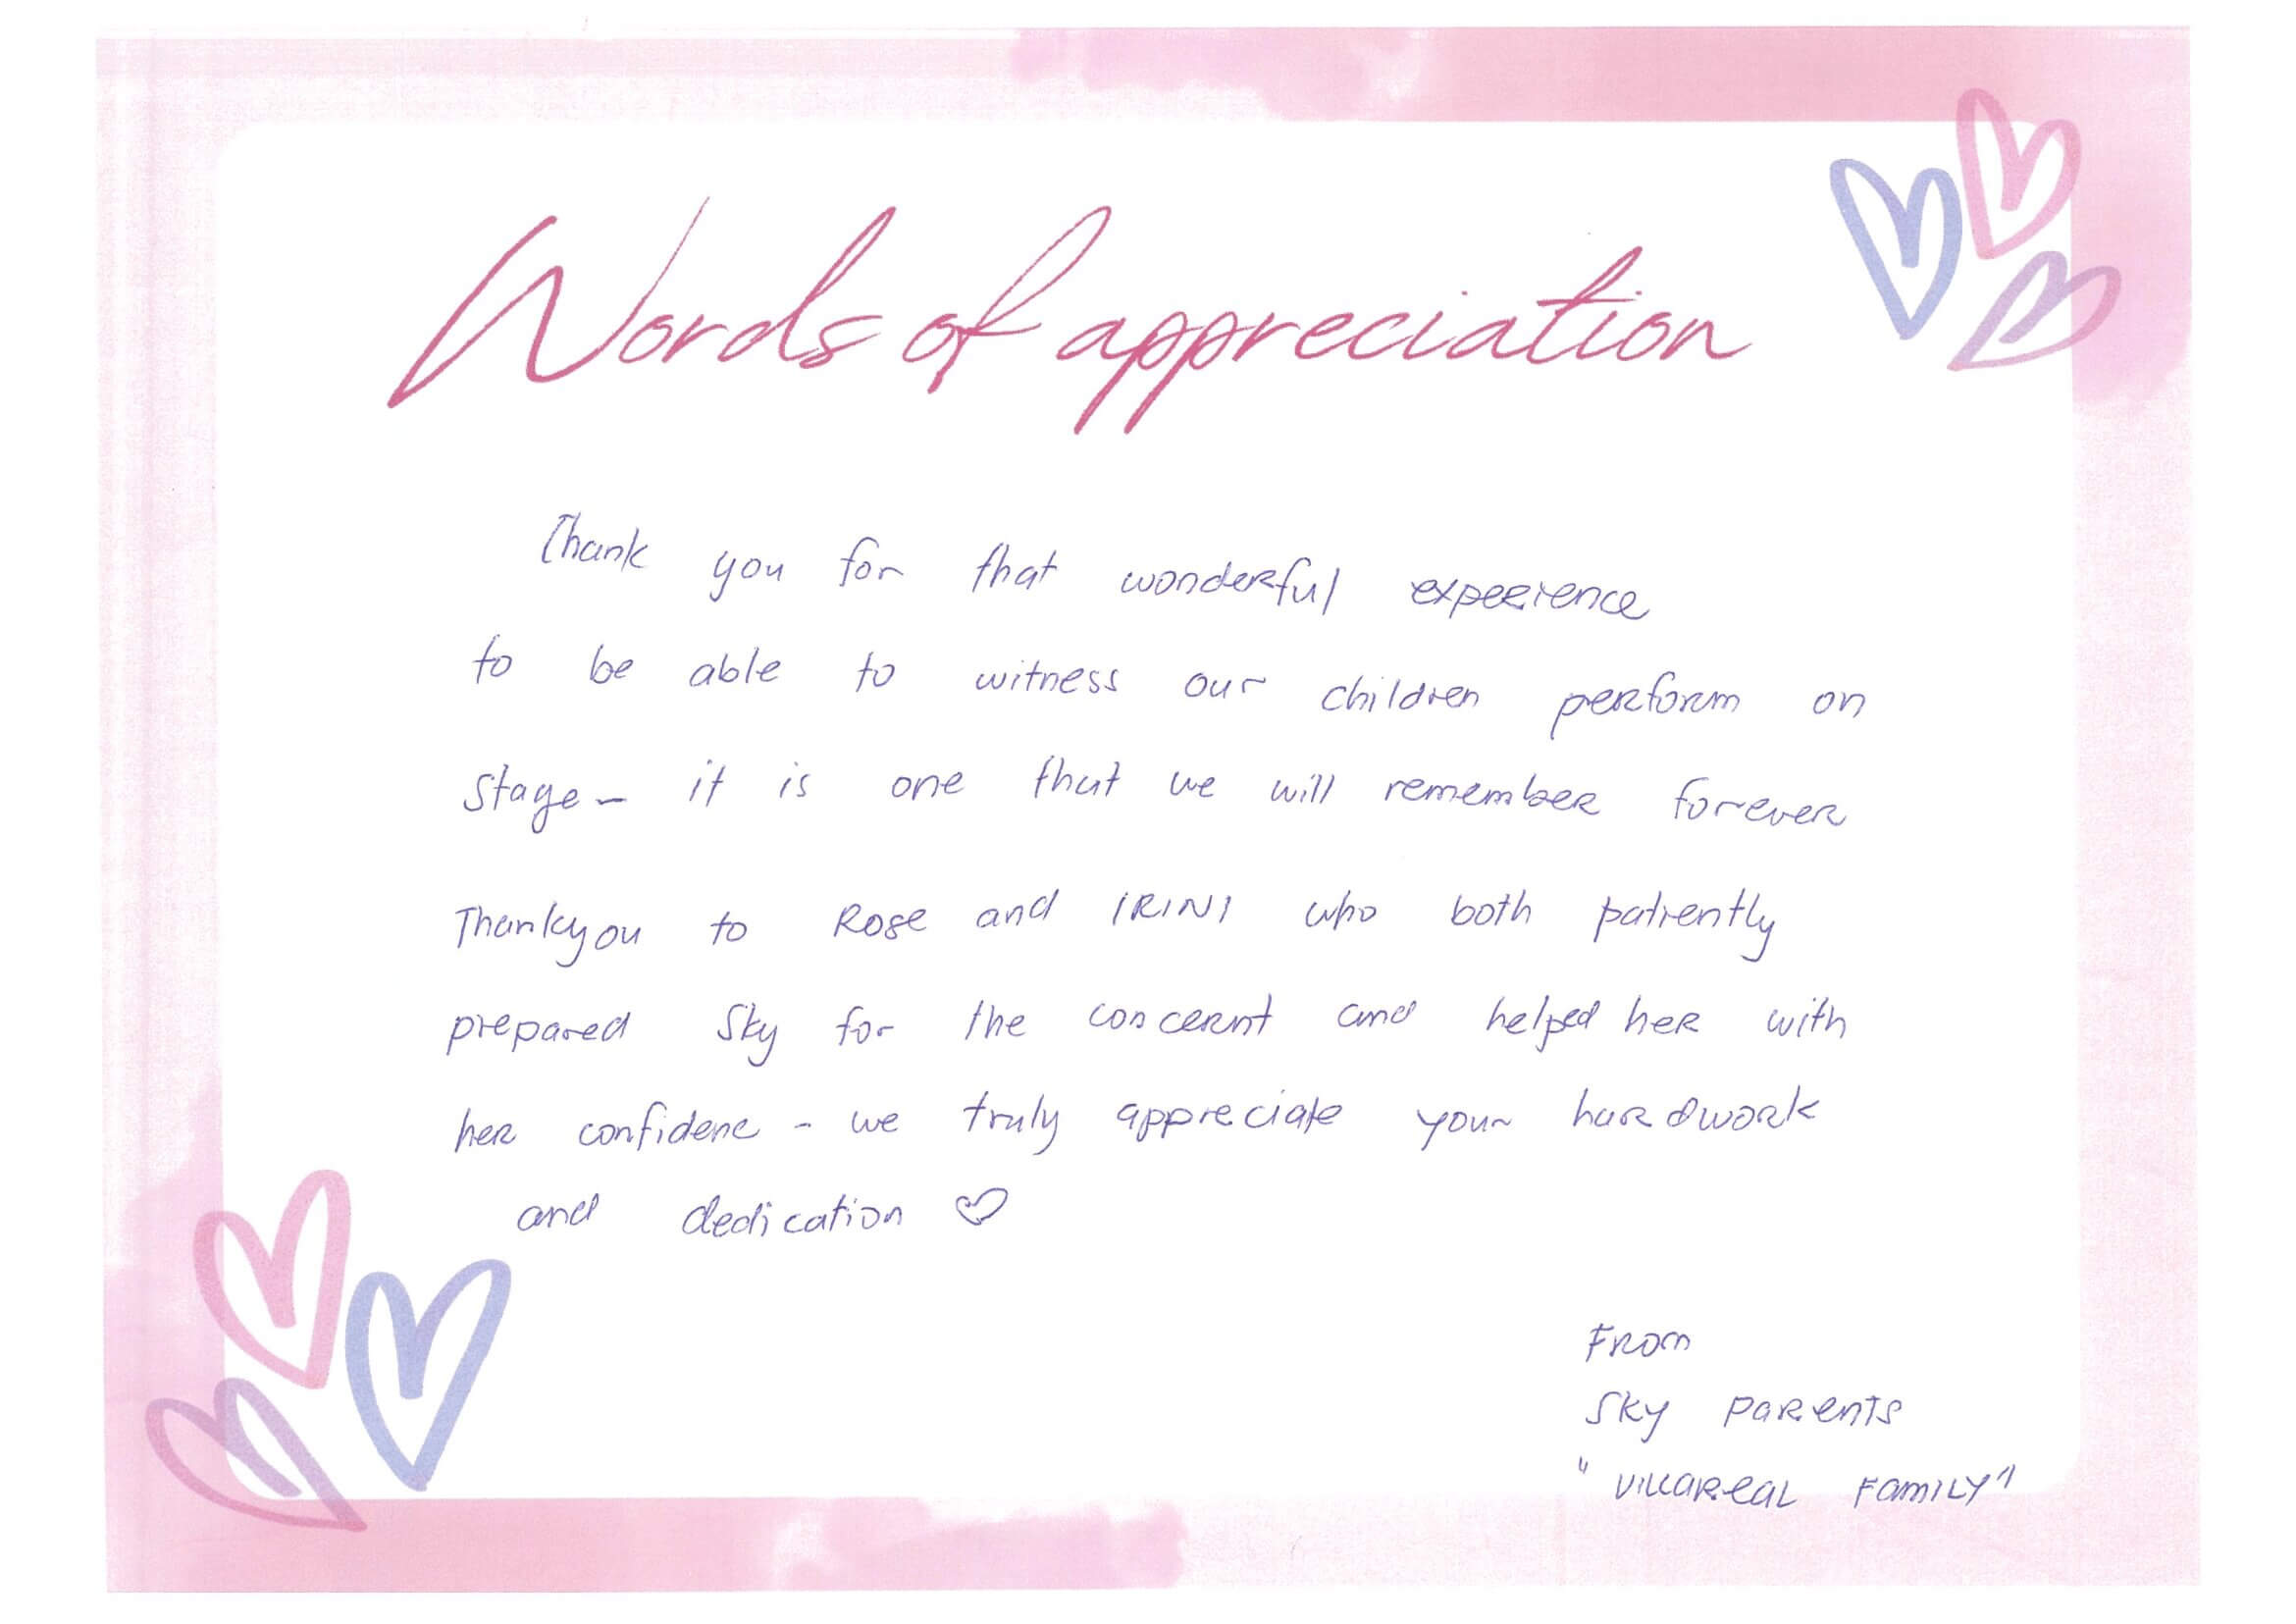 Words of appreciation
Thank you for that wonderful experience
to be able to witness our children perform on
stage - it is one that we will remember forever
Thankyou to Rose and IRINI who both patiently
prepared Sky for the concernt and helped her with
her confidene - we truly appreciate your hardwork
and dedication ♡
From
Sky parents
"VILLAREAL FAMILY"